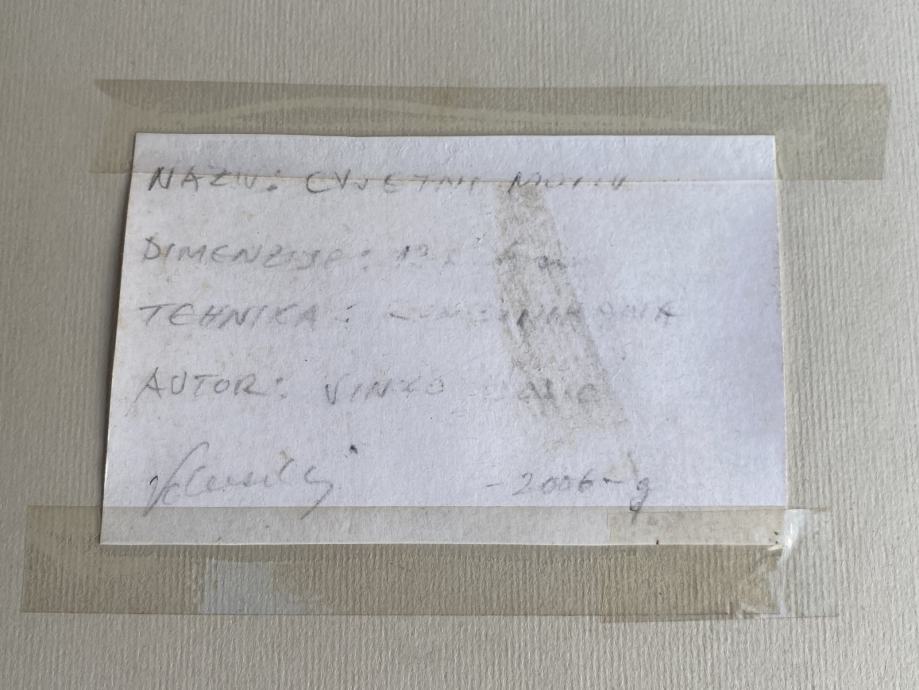 NAZIV: CVJETNI MOTIV
DIMENZIJE: 13 x
TEHNIKA: KOMBINIRANA
AUTOR: VINKO
-2006- g